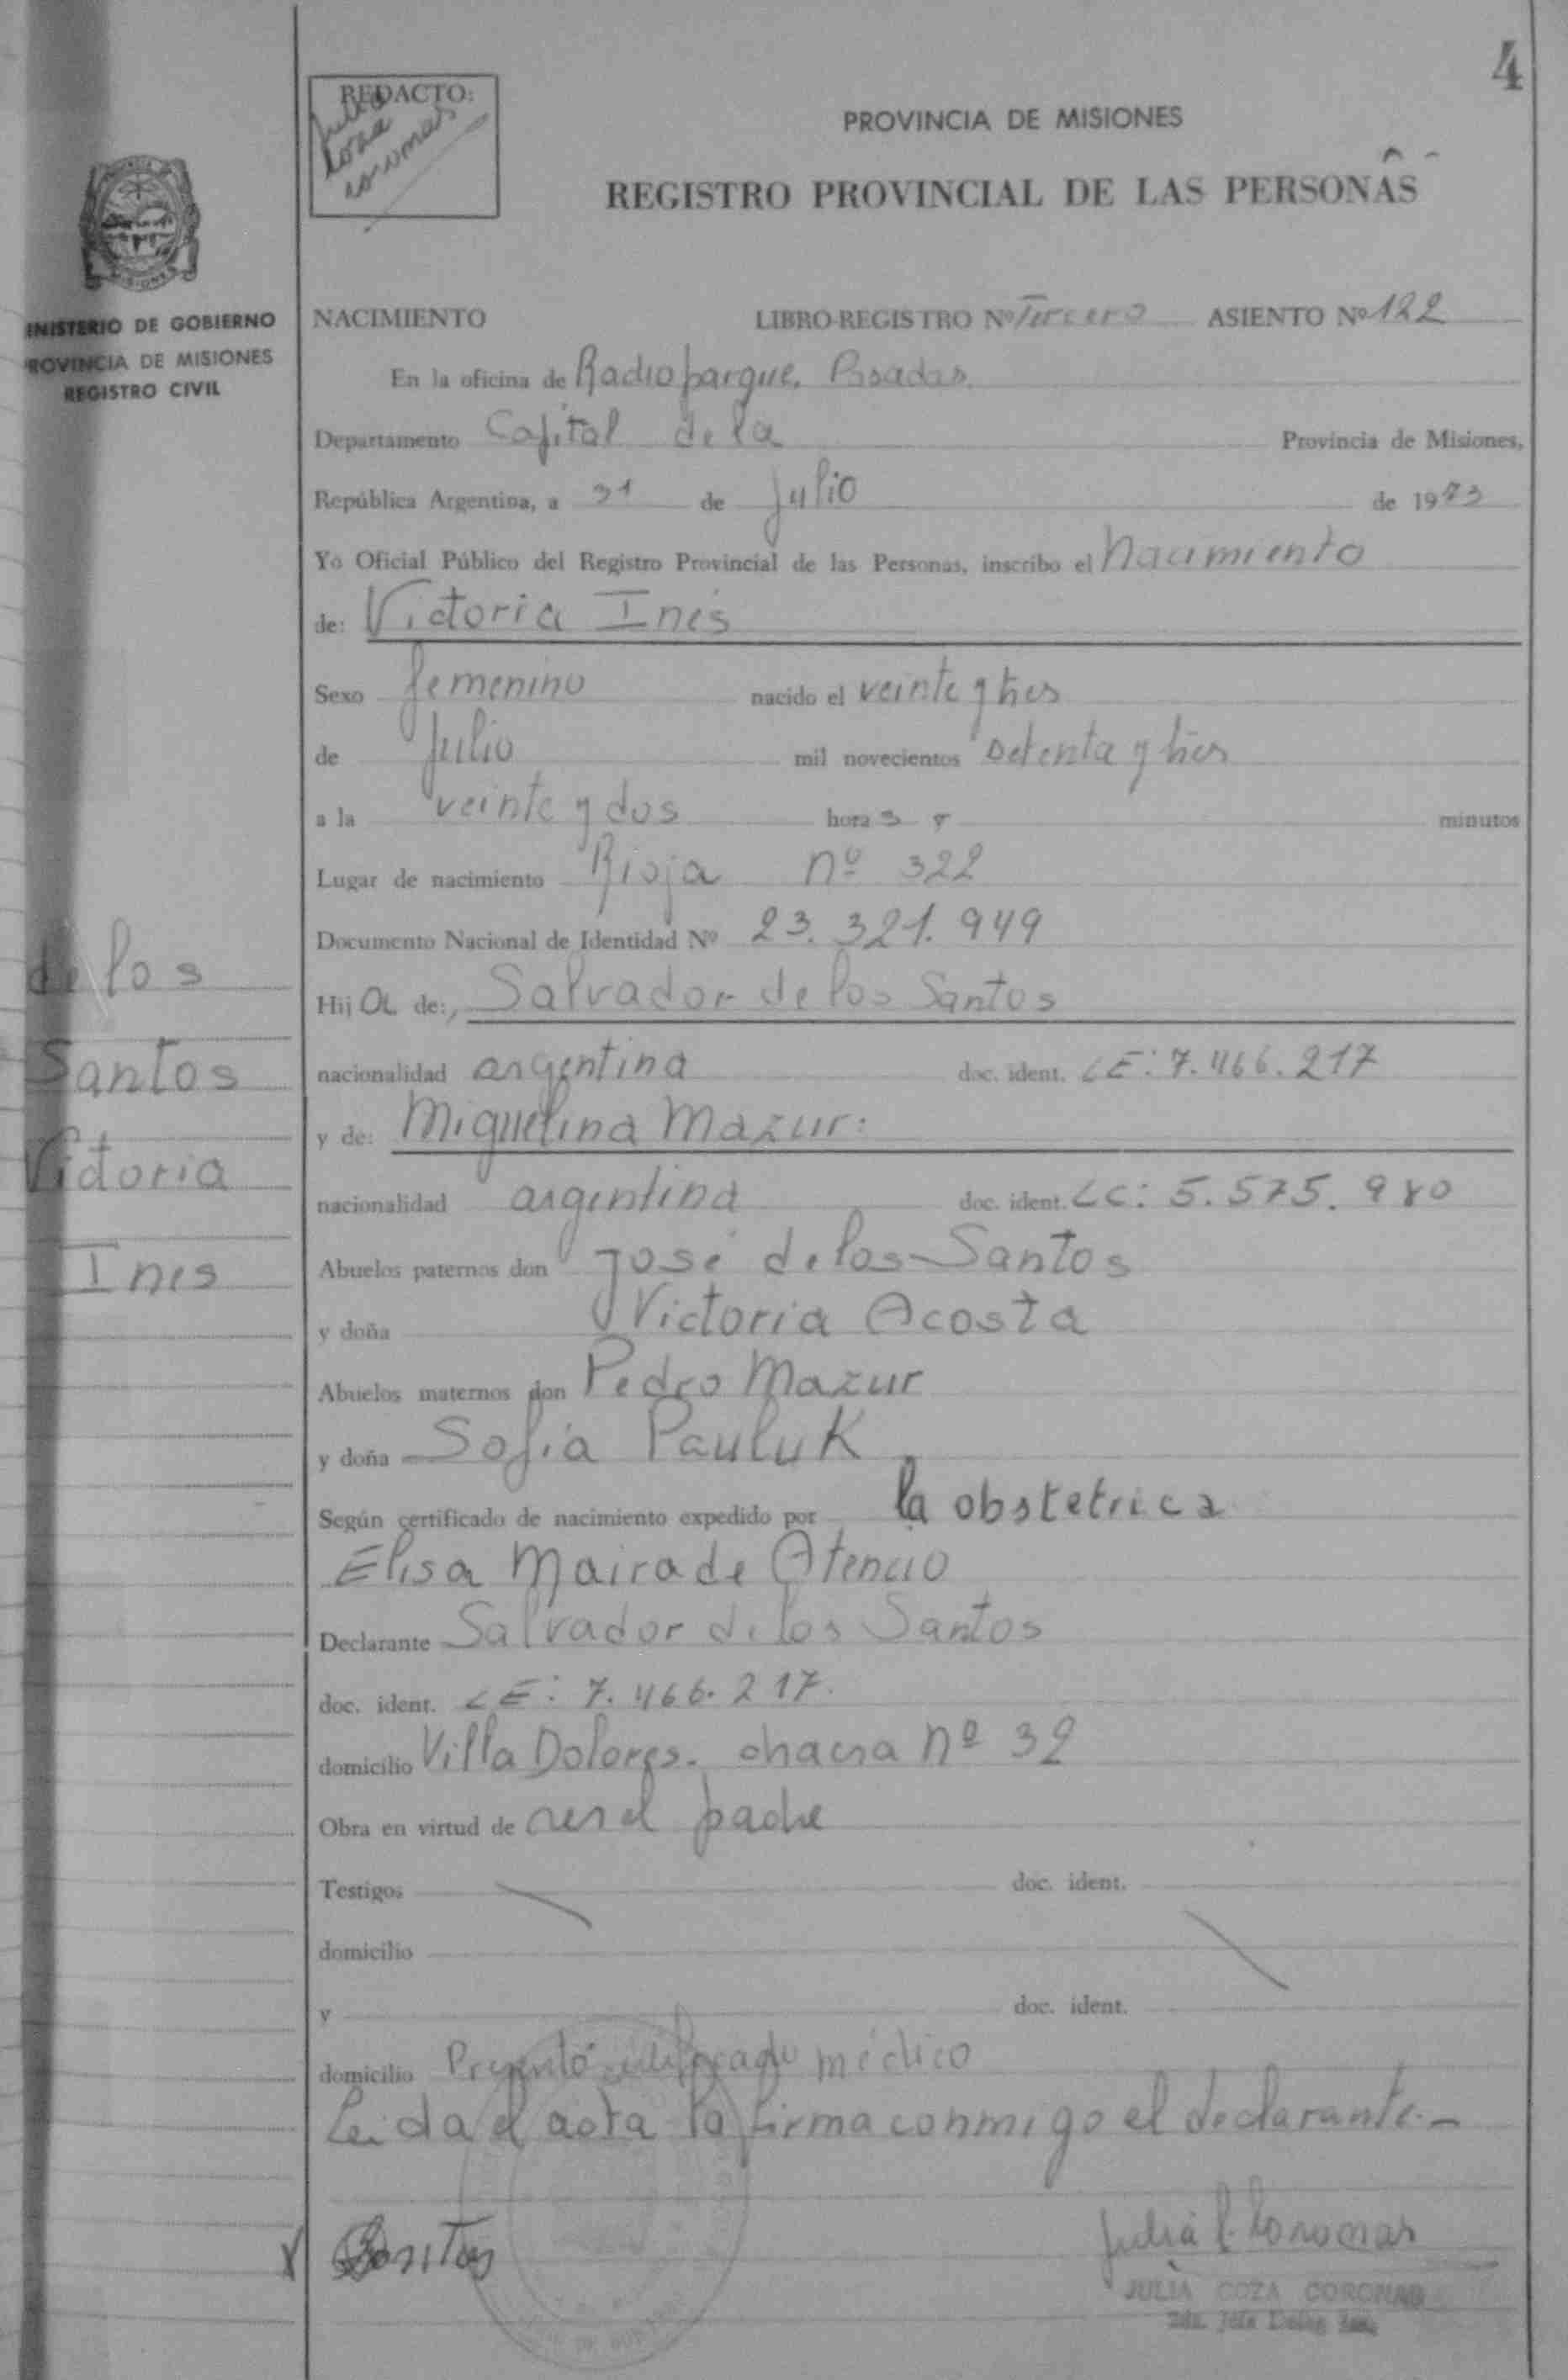 4
REDACTO:
Julia
Coza
Coromas
PROVINCIA DE MISIONES
REGISTRO PROVINCIAL DE LAS PERSONAS
INISTERIO DE GOBIERNO
ROVINCIA DE MISIONES
REGISTRO CIVIL
NACIMIENTO LIBRO-REGISTRO Nº Tercero ASIENTO Nº 122
En la oficina de Radioparque. Posadas
Departamento Capital de la Provincia de Misiones,
República Argentina, a 31 de Julio de 1973
Yo Oficial Público del Registro Provincial de las Personas, inscribo el Nacimiento
de: Victoria Inés
Sexo femenino nacido el veinte y tres
de Julio mil novecientos setenta y tres
a la veinte y dos hora s minutos
Lugar de nacimiento Rioja nº 322
Documento Nacional de Identidad Nº 23.321.949
Hija de:, Salvador de los Santos
nacionalidad argentina doc. ident. LE: 7.466.217
y de: Miguelina Mazur:
nacionalidad argentina doc. ident. LC: 5.575.980
Abuelos paternos don José de los Santos
y doña Victoria Acosta
Abuelos maternos don Pedro Mazur
y doña Sofia Pauluk
Según certificado de nacimiento expedido por la obstetrica
Elisa Maira de Atencio
Declarante Salvador de los Santos
doc. ident. LE: 7.466.217.
domicilio Villa Dolores. chacra nº 32
Obra en virtud de ser el padre
Testigos doc. ident.
domicilio
y doc. ident.
domicilio Presentó certificado médico
Leida el acta la firma conmigo el declarante.-
de los
Santos
Victoria
Ines
x Santos
JULIA COZA CORONAS